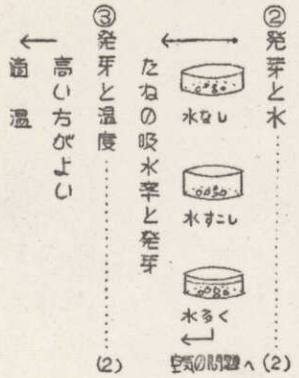 ②発芽と水……………(2)
水なし
水すこし
水多く
空気の問題へ
たねの吸水率と発芽
③発芽と温度……………(2)
高い方がよい
適温